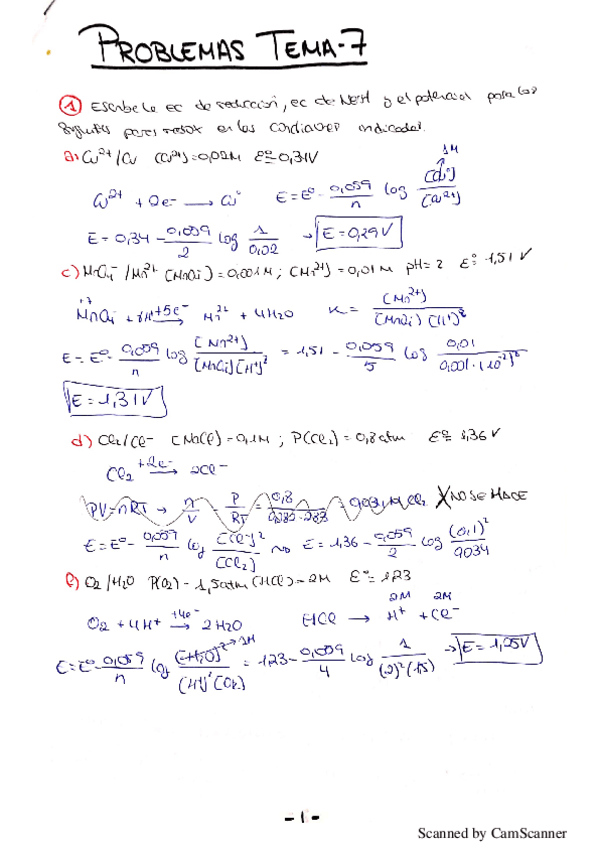 PROBLEMAS TEMA-7
① Escribe la ec de reducción, ec de NERST y el potencial para los
siguientes pares redox en las condiciones indicadas.
a) Cu²⁺/Cu [Cu²⁺]=0,02M Eº=0,34V
1M
Cu²⁺ + 2e⁻ → Cuº E = Eº - 0,059/n log [Cuº]/[Cu²⁺]
E = 0,34 - 0,059/2 log 1/0,02 → E = 0,29V
c) MnO₄⁻/Mn²⁺ [MnO₄⁻] = 0,001M ; [Mn²⁺] = 0,01M pH = 2 Eº = 1,51 V
+7
MnO₄⁻ + 8H⁺ +5e⁻ → Mn²⁺ + 4H₂O K = [Mn²⁺]/[MnO₄⁻][H⁺]⁸
E = Eº - 0,059/n log [Mn²⁺]/[MnO₄⁻][H⁺]⁸ = 1,51 - 0,059/5 log 0,01/0,001·(10⁻²)⁸
E = 1,31V
d) Cl₂/Cl⁻ [NaCl] = 0,1M ; P(Cl₂) = 0,8atm Eº = 1,36 V
Cl₂ +2e⁻ → 2Cl⁻
PV = nRT → n/V = P/RT = 0,8/ X NO SE HACE
E = Eº - 0,059/n log [Cl⁻]²/[Cl₂] E = 1,36 - 0,059/2 log (0,1)²/0,034
O₂/H₂O P(O₂) - 1,5atm [HCl] = 2M Eº = 1,23
2M 2M
O₂ + 4H⁺ +4e⁻ → 2H₂O HCl → H⁺ + Cl⁻
E = Eº - 0,059/n log [H₂O]² → 1M/[H⁺]⁴[O₂] = 1,23 - 0,059/4 log 1/(2)²(1,5) → E = 1,25V
- 1 -
Scanned by CamScanner